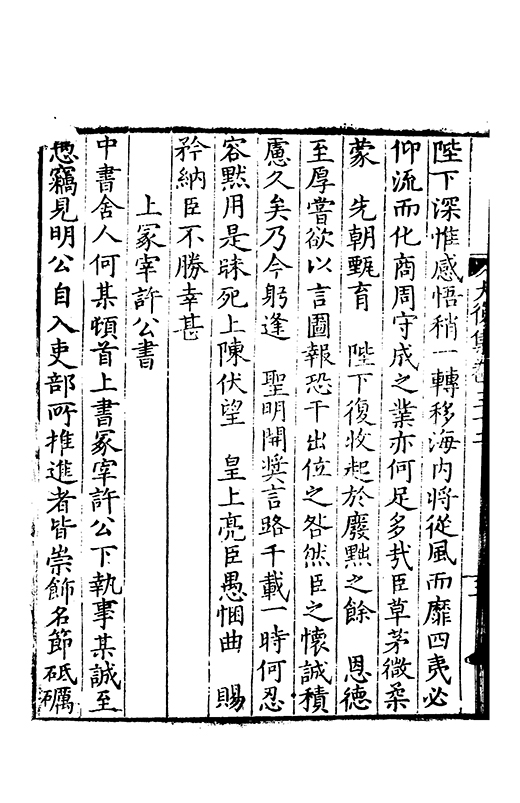 陛下深惟感悟稍一轉移海内將從風而靡四夷必
仰流而化商周守成之業亦何足多㢤臣草茅微柔
蒙　先朝甄育　陛下復收起於廢黜之餘　恩德
至厚嘗欲以言圖報恐干出位之咎然臣之懷誠積
慮久矣乃今躬逢　聖明開奬言路千載一時何忍
容黙用是昧死上陳伏望　皇上亮臣愚悃曲　賜
矜納臣不勝幸甚
上冢宰許公書
中書舍人何某頓首上書冢宰許公下執事某誠至
愚竊見明公自入吏部所推進者皆崇飾名節砥礪